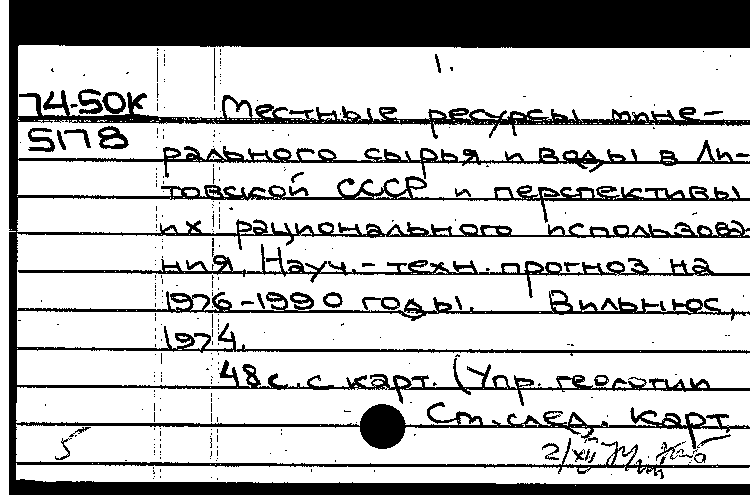 1.
74-50К Местные ресурсы мине-
5178 рального сырья и воды в Ли-
товской СССР и перспективы
их рационального использова-
ния, Науч.-техн. прогноз на
1976-1990 годы. Вильнюс,
1974.
48с. с карт. (Упр. геологии
См. след. карт
5 2/XII